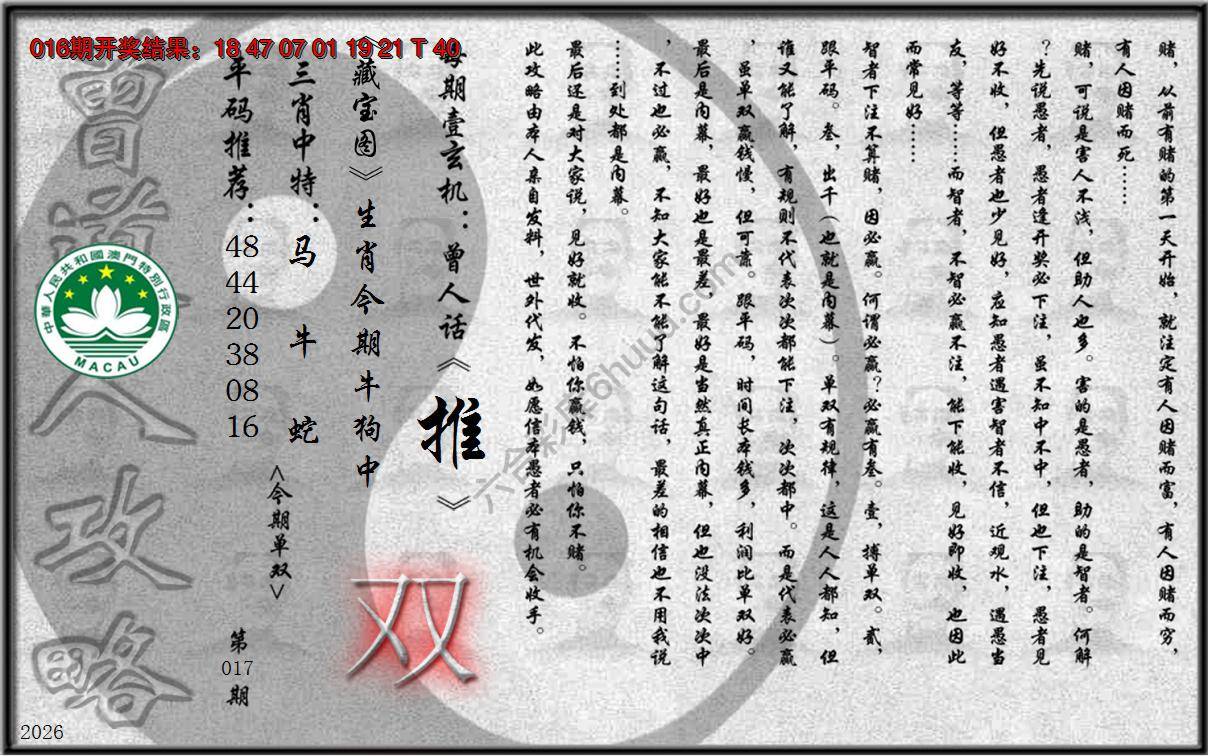 016期开奖结果：18 47 07 01 19 21 T 40
赌，从前有赌的第一天开始，就注定有人因赌而富，有人因赌而穷，
有人因赌而死……
赌，可说是害人不浅，但助人也多。害的是愚者，助的是智者。何解
？先说愚者，愚者逢开奖必下注，虽不知中不中，但也下注，愚者见
好不收，但愚者也少见好，应知愚者遇害智者不信，近观水，遇愚当
友，等等……而智者，不智必赢不注，能下能收，见好即收，也因此
而常见好……
智者下注不算赌，因必赢。何谓必赢？必赢有叁。壹，搏单双。贰，
跟平码。叁，出千（也就是内幕）。单双有规律，这是人人都知，但
谁又能了解，有规则不代表次次都能下注，次次都中。而是代表必赢
，虽单双赢钱慢，但可靠。跟平码，时间长本钱多，利润比单双好。
最后是内幕，最好也是最差，最好是当然真正内幕，但也没法次次中
，不过也必赢，不知大家能不能了解这句话，最差的相信也不用我说
……到处都是内幕。
最后还是对大家说，见好就收。不怕你赢钱，只怕你不赌。
此攻略由本人亲自发料，世外代发，如愿信本愚者必有机会收手。
每期壹玄机：曾人话《推》
《藏宝图》生肖今期牛狗中
双
三肖中特：马 牛 蛇
<今期单双>
平码推荐：48 44 20 38 08 16
第017期
曾道人攻略
中華人民共和國澳門特別行政區
MACAU
六合彩库6huuu.com
2026